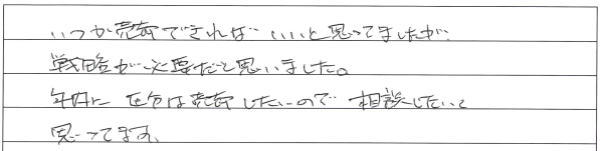 いつか売却できればいいと思ってましたが、
戦略が必要だと思いました。
年内に 区分は売却したいので 相談したいと
思ってます。